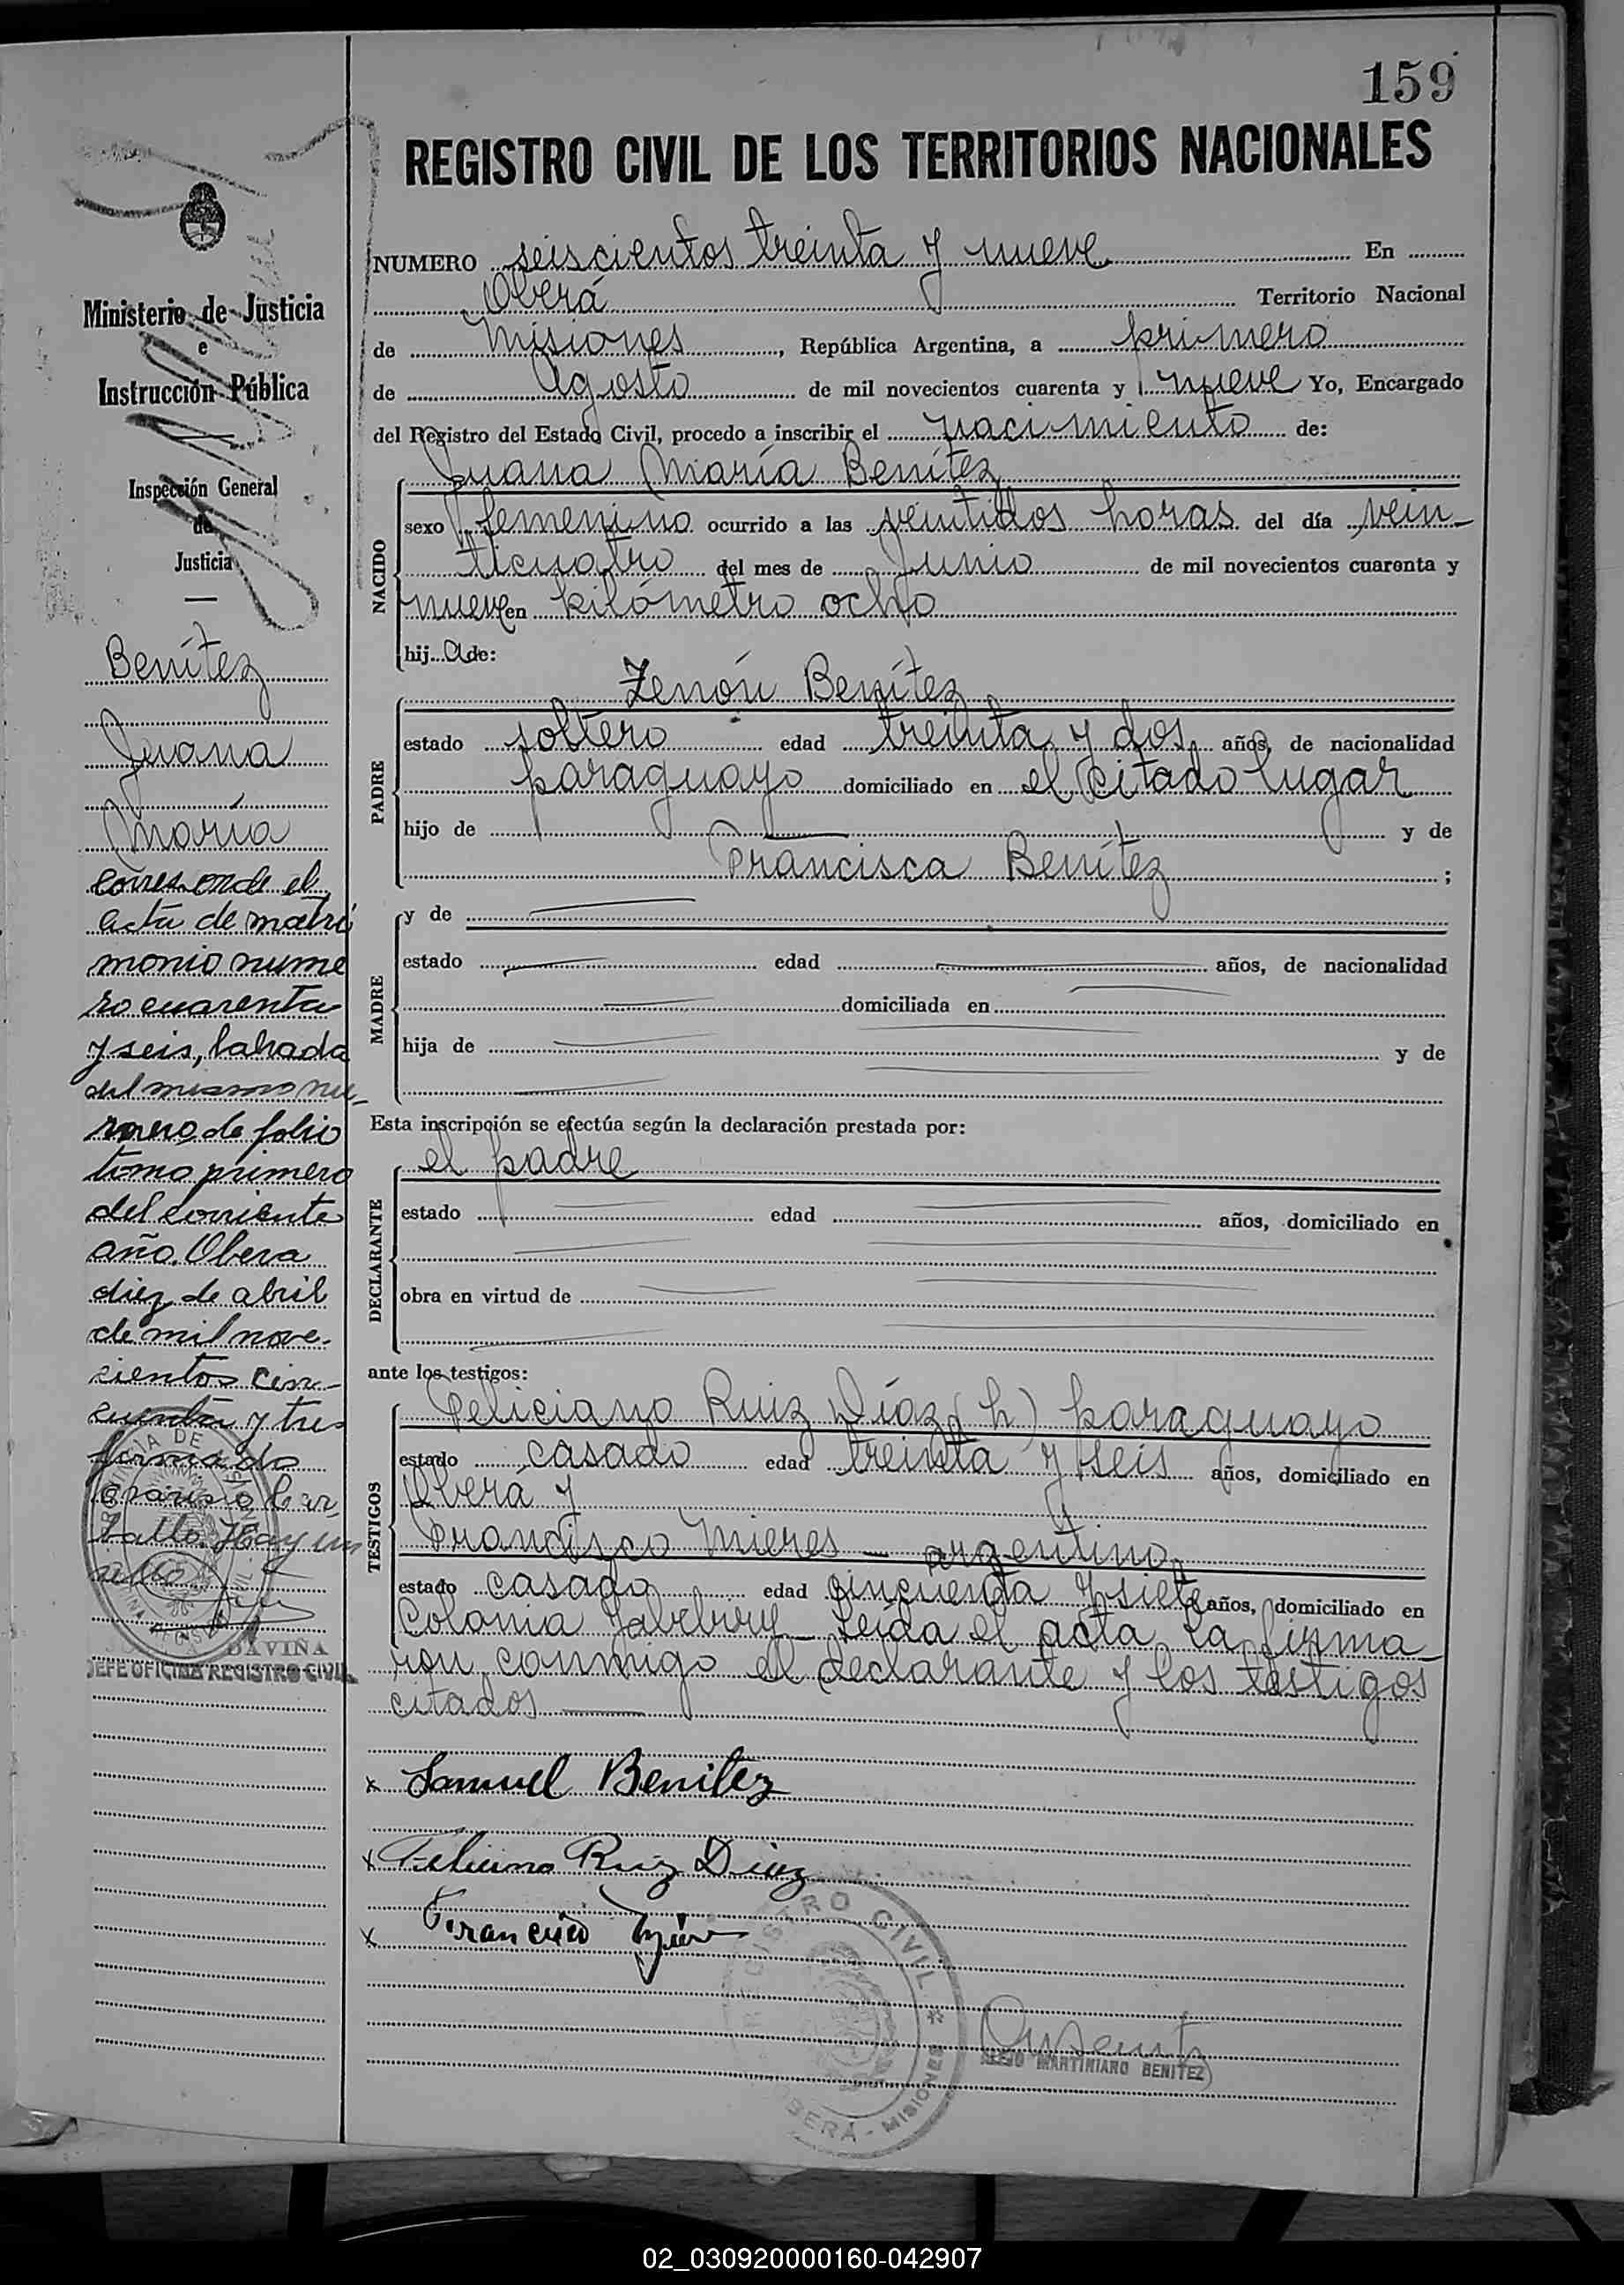 159
REGISTRO CIVIL DE LOS TERRITORIOS NACIONALES
NUMERO seiscientos treinta y nueve En
Oberá Territorio Nacional
de Misiones, República Argentina, a primero
de Agosto de mil novecientos cuarenta y nueve Yo, Encargado
del Registro del Estado Civil, procedo a inscribir el nacimiento de:
Juana María Benítez
NACIDO
sexo femenino ocurrido a las veintidos horas del día vein-
ticuatro del mes de Junio de mil novecientos cuarenta y
nueve en kilómetro ocho
hija de:
PADRE
Zenón Benítez
estado soltero edad treinta y dos años, de nacionalidad
paraguayo domiciliado en el citado lugar
hijo de y de
Francisca Benítez ;
MADRE
y de
estado edad años, de nacionalidad
domiciliada en
hija de y de
Esta inscripción se efectúa según la declaración prestada por:
DECLARANTE
el padre
estado edad años, domiciliado en
obra en virtud de
ante los testigos:
TESTIGOS
Feliciano Ruiz Díaz (h) paraguayo
estado casado edad treinta y seis años, domiciliado en
Oberá y
Francisco Mieres - argentino
estado casado edad cincuenta y siete años, domiciliado en
Colonia Yabebiry - Leída el acta la firma-
ron conmigo el declarante y los testigos
citados
x Samuel Benitez
x Feliciano Ruiz Diaz
x Francisco
REGISTRO CIVIL * OBERÁ - MISIONES
ALEJO MARTINIANO BENITEZ
Ministerio de Justicia
e
Instrucción Pública
Inspección General
de
Justicia
Benítez
Juana
María
Corresponde el
acta de matri
monio nume
ro cuarenta
y seis, labrada
del mismo nu-
mero de folio
tomo primero
del corriente
año. Obera
diez de abril
de mil nove-
cientos cin-
cuenta y tres
firmado
Hay un
sello
DAVIÑA
JEFE OFICINA REGISTRO CIVIL
02_030920000160-042907